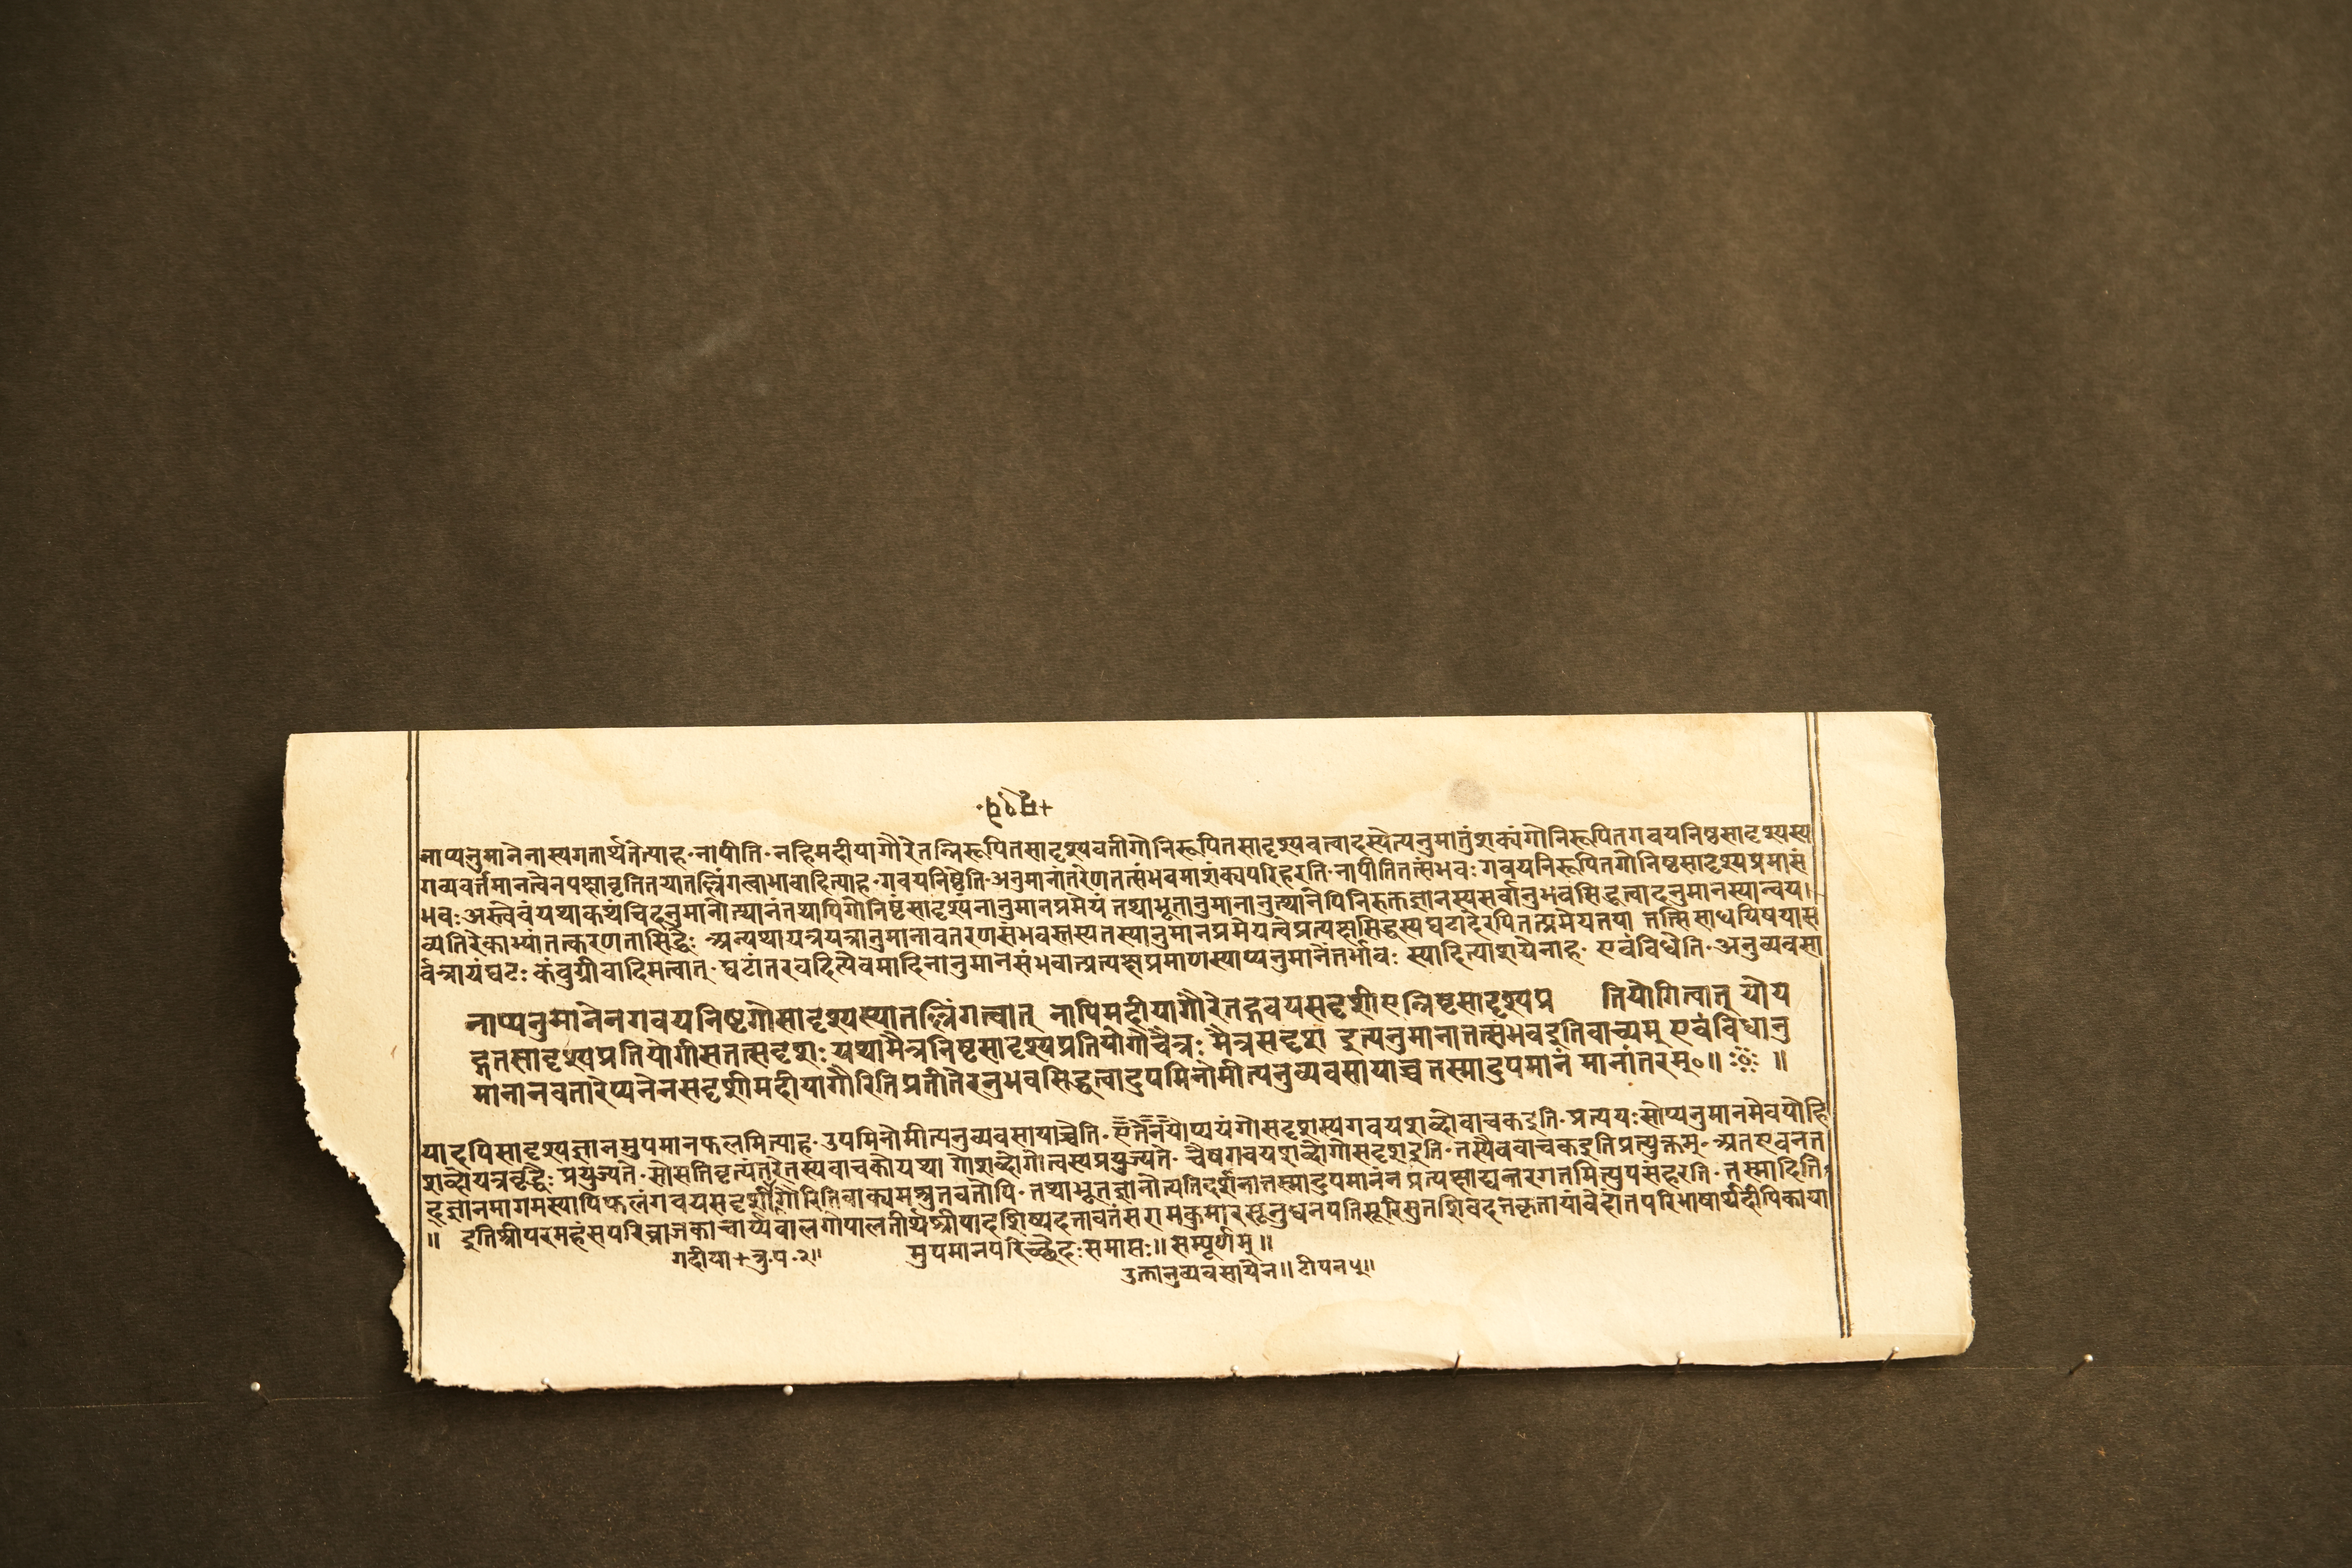 नाप्यनुमानेनास्यगतार्थतेत्याह॰नापीति॰नहिमदीयागौरेतन्निरूपितसादृश्यवतीगोनिरूपितसादृश्यवत्वादस्येत्यनुमातुंशक्यंगोनिरूपितगवयनिष्ठसादृश्यस्य
गव्यवर्तमानत्वेनपक्षावृत्तितयातल्लिंगत्वाभावादित्याह॰गवयनिष्ठेति॰अनुमानांतरेणतत्संभवमाशंक्यपरिहरति॰नापीतितत्संभवः गवयनिरूपितगोनिष्ठसादृश्यप्रमासं
भवःअस्त्वेवंयथाकथंचिदनुमानोत्थानंतथापिगोनिष्ठंसादृश्यनानुमानप्रमेयं तथाभूतानुमानानुत्थानेपिनिरुक्तज्ञानस्यसर्वानुभवसिद्धत्वादनुमानस्यान्वय।
व्यतिरेकाभ्यांतत्करणतासिद्धेः अन्यथायत्रयत्रानुमानावतरणसंभवस्तस्यतस्यानुमानप्रमेयत्वेप्रत्यक्षसिद्धस्यघटादेरपितत्प्रमेयतया तत्सिसाधयिषयास
र्वत्रायंघटः कंबुग्रीवादिमत्वात्॰घटांतरवदित्येवमादिनानुमानसंभवात्प्रत्यक्षप्रमाणस्याप्यनुमानेंतर्भावः स्यादित्याशयेनाह॰ एवंविधेति॰अनुव्यवसा
नाप्यनुमानेनगवयनिष्टगोसादृश्यस्यातल्लिंगत्वात् नापिमदीयागौरेतद्गवयसदृशीएतन्निष्टसादृश्यप्र तियोगित्वात् योय
द्गतसादृश्यप्रतियोगीसतत्सदृशः यथामैत्रनिष्टसादृश्यप्रतियोगीचैत्रः मैत्रसदृश इत्यनुमानात्तत्संभवइतिवाच्यम् एवंविधानु
मानानवतारेप्यनेनसदृशीमदीयागौरितिप्रतीतेरनुभवसिद्धत्वादुपमिनोमीत्यनुव्यवसायाच्च तस्मादुपमानं मानांतरम्०॥ ॥
यादपिसादृश्यज्ञानमुपमानफलमित्याह॰उपमिनोमीत्यनुव्यवसायाच्चेति॰एतेनयोप्ययंगोसदृशस्यगवयशब्दोवाचकइति॰प्रत्ययःसोप्यनुमानमेवयोहि
शब्दोयत्रवृद्धैः प्रयुज्यते॰सोसतिवृत्यंतरेतस्यवाचकोयथा गोशब्दोगोत्वस्यप्रयुज्यते॰ चैषगवयशब्दोगोसदृशइति॰तस्यैववाचकइतिप्रत्युक्तम्॰अतएवनत
द्ज्ञानमागमस्यापिफलंगवयसदृशीगौरितिवाक्यमश्रुतवतोपि॰तथाभूतज्ञानोत्पत्तिदर्शनात्तस्मादुपमानंन प्रत्यक्षाद्यन्तरगतमित्युपसंहरति॰तस्मादिति
॥ इतिश्रीपरमहंसपरिव्राजकाचार्य्यबालगोपालतीर्थश्रीपादशिष्यदत्तावतंसरामकुमारसूनुधनपतिसूरिसुतशिवदत्तकृतायांवेदांतपरिभाषार्थदीपिकाया
गदीया+त्रु॰प॰२॥ मुपमानपरिच्छेदःसमाप्तः॥सम्पूर्णम्॥
उक्तानुव्यवसायेन॥टीपन५॥